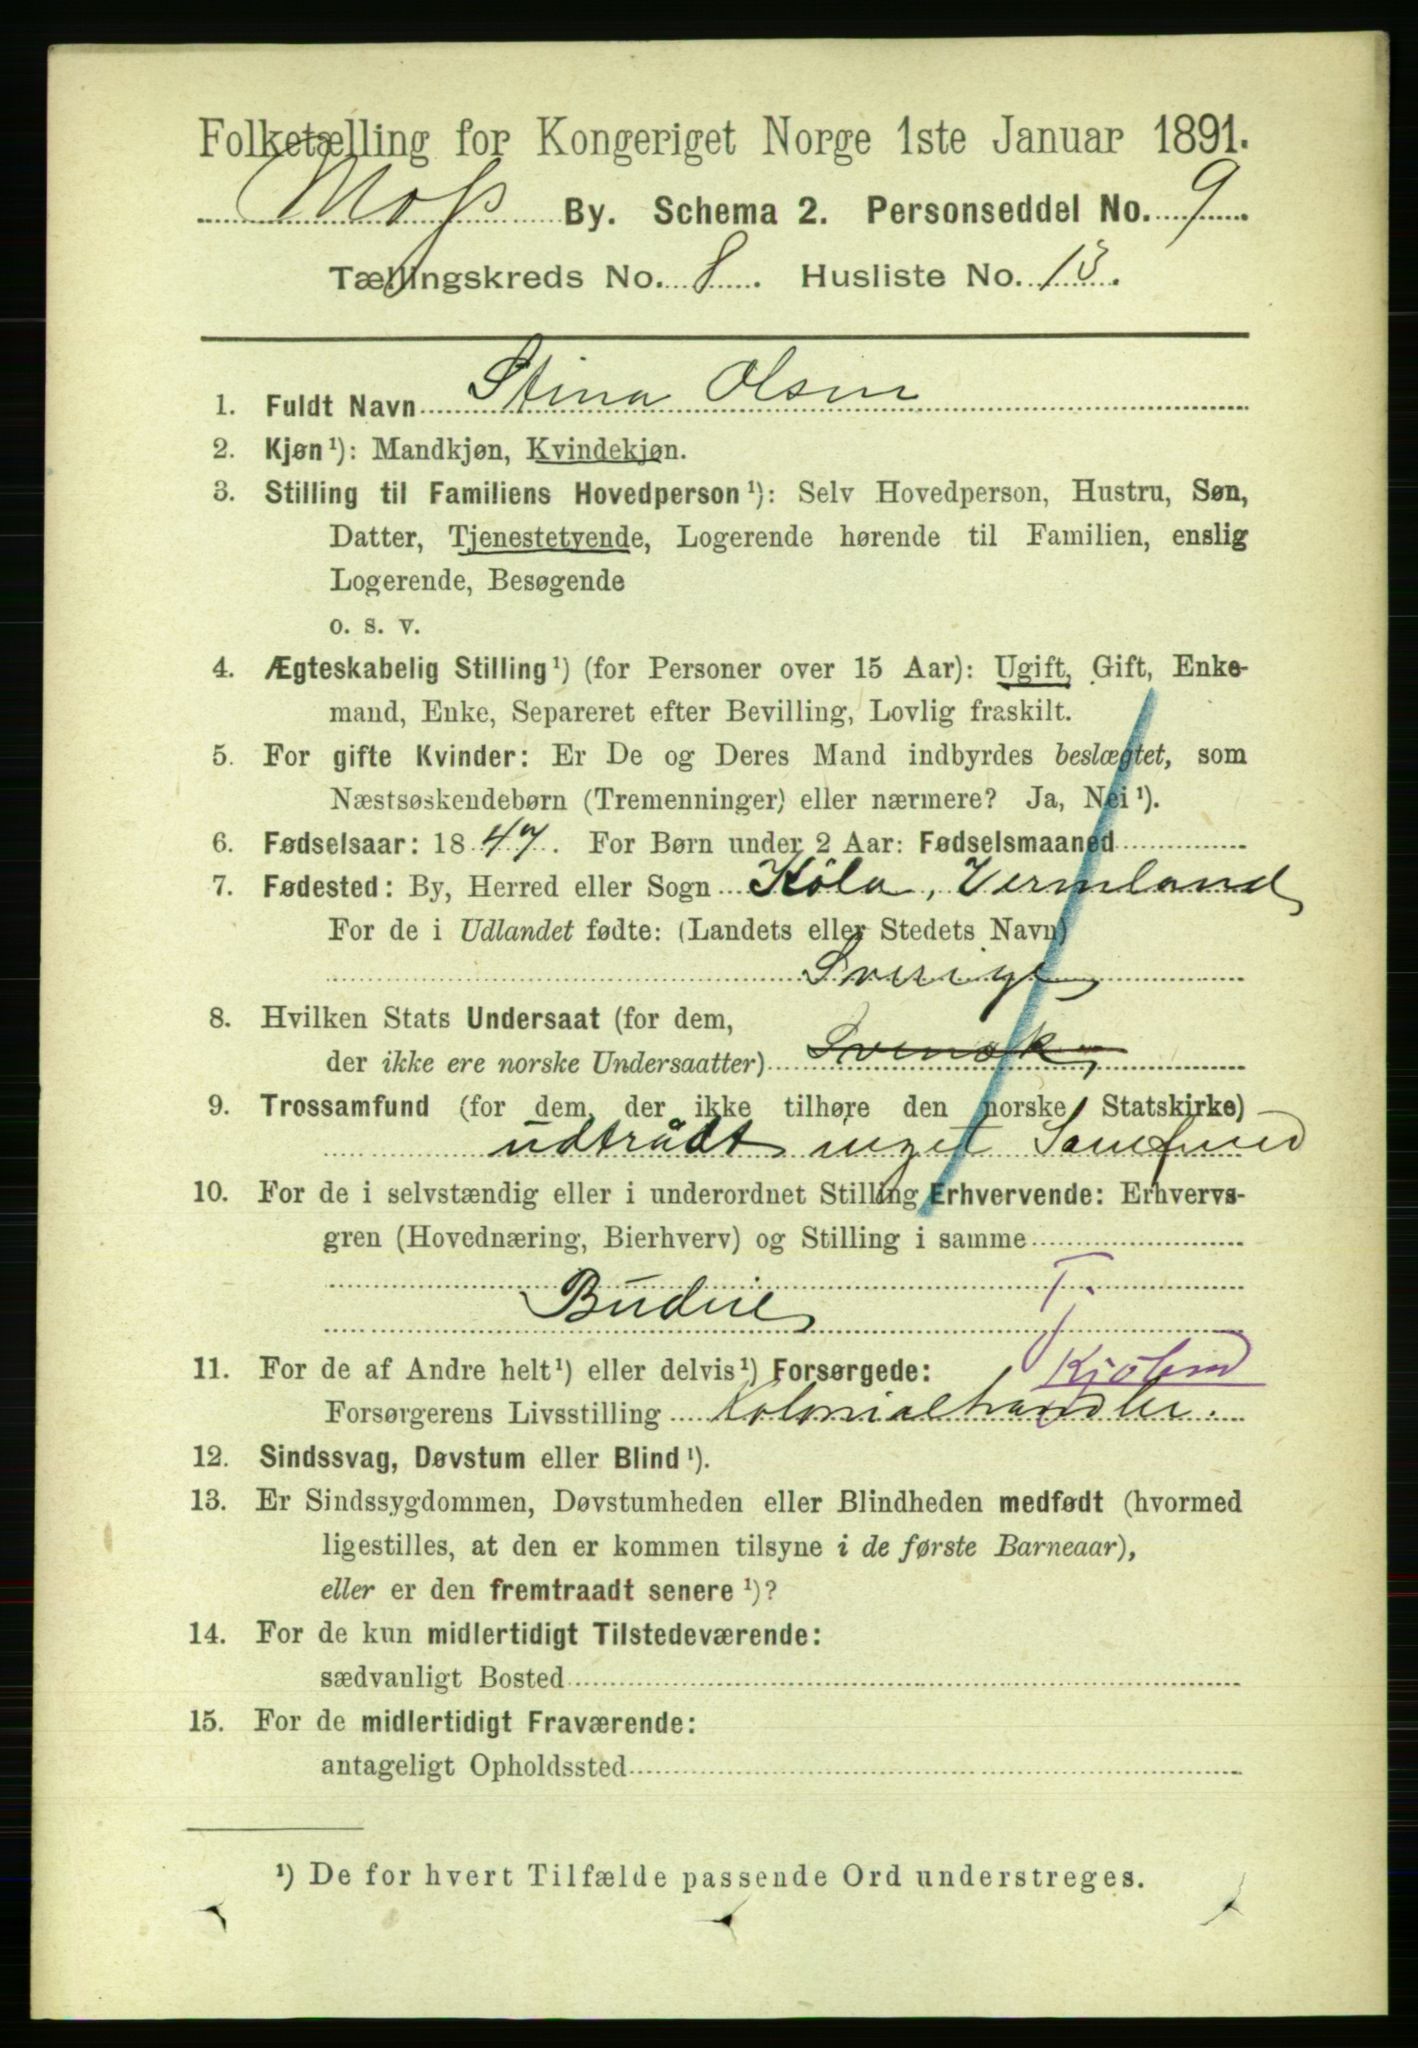 Folketælling for Kongeriget Norge 1ste Januar 1891.
Moss By. Schema 2. Personseddel No. 9
Tællingskreds No. 8. Husliste No. 13.
1. Fuldt Navn Stina Olsen
2. Kjøn ¹): Mandkjøn, Kvindekjøn.
3. Stilling til Familiens Hovedperson ¹): Selv Hovedperson, Hustru, Søn,
Datter, Tjenestetyende, Logerende hørende til Familien, enslig
Logerende, Besøgende
o. s. v.
4. Ægteskabelig Stilling ¹) (for Personer over 15 Aar): Ugift, Gift, Enke-
mand, Enke, Separeret efter Bevilling, Lovlig fraskilt.
5. For gifte Kvinder: Er De og Deres Mand indbyrdes beslægtet, som
Næstsøskendebørn (Tremenninger) eller nærmere? Ja, Nei ¹).
6. Fødselsaar: 1847. For Børn under 2 Aar: Fødselsmaaned
7. Fødested: By, Herred eller Sogn Köla, Vermland
For de i Udlandet fødte: (Landets eller Stedets Navn)
Sverige
8. Hvilken Stats Undersaat (for dem,
der ikke ere norske Undersaatter) Svensk
9. Trossamfund (for dem, der ikke tilhøre den norske Statskirke)
udtrådt inget Samfund
10. For de i selvstændig eller i underordnet Stilling Erhvervende: Erhvervs-
gren (Hovednæring, Bierhverv) og Stilling i samme
T.
Budeie
11. For de af Andre helt ¹) eller delvis ¹) Forsørgede:
Forsørgerens Livsstilling Kolonialhandler.
12. Sindssvag, Døvstum eller Blind ¹).
13. Er Sindssygdommen, Døvstumheden eller Blindheden medfødt (hvormed
ligestilles, at den er kommen tilsyne i de første Barneaar),
eller er den fremtraadt senere ¹)?
14. For de kun midlertidigt Tilstedeværende:
sædvanligt Bosted
15. For de midlertidigt Fraværende:
antageligt Opholdssted
¹) De for hvert Tilfælde passende Ord understreges.